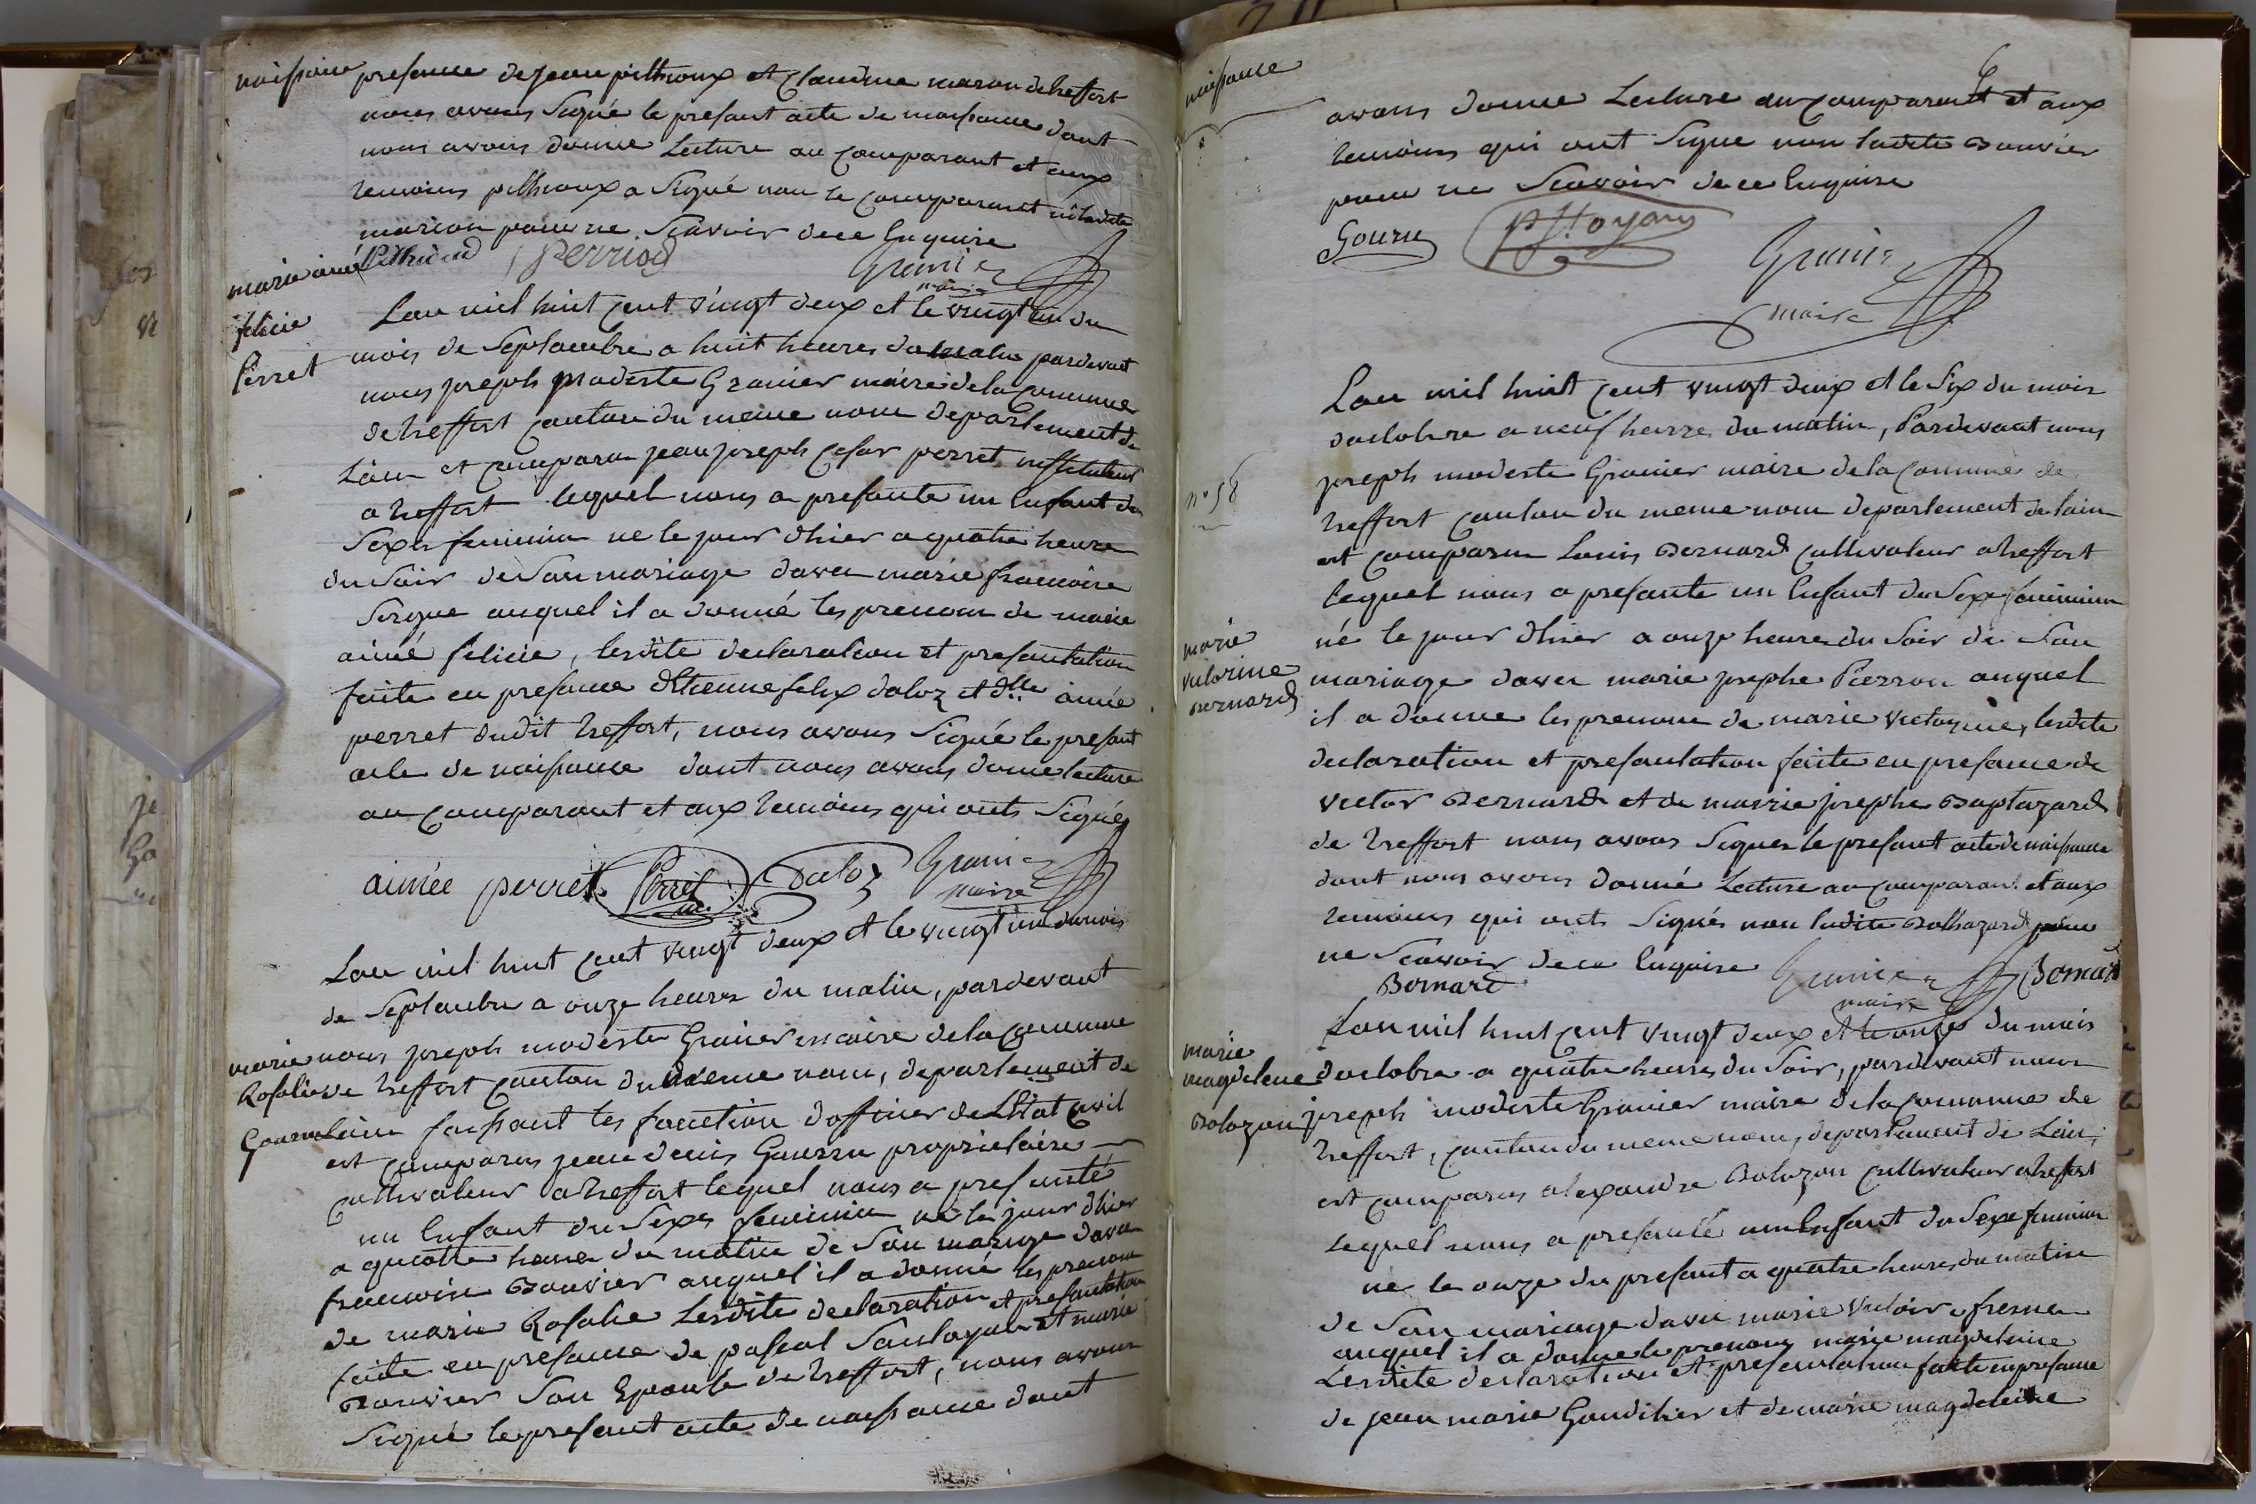 naissance
presance de jean pithioux et Claudine marion de treffort
nous avons Signé le presant acte de naissance dont
nous avons donne Lecture au Comparant et aux
temoins pithioux a Signé non le Comparant ni ladite
marion pour ne Scavoir de ce Enquire
Perriod
Granier
maire
marie aimé
felicie
Perret
Lan mil huit Cent vingt deux et le vingt un du
mois de Septambre a huit heures du matin pardevant
nous joseph modeste Granier maire de la Commune
de treffort canton du meme nom departement de
Lain et comparu jean joseph Cesar perret instituteur
a treffort lequel nous a presante un Enfant du
Sexe feminin ne le jour dhier a quatre heure
du Soir de Son mariage davec marie francoise
auquel il a donné les prenom de marie
aimé felicie, lesdite declaration et presantation
faite en presance dEtienne felix daloz et dlle aimée
perret dudit treffort, nous avons Signé le presant
acte de naissance dont nous avons donne lecture
au Comparant et aux temoins qui onts Signés
aimée perret Perret Daloz Granier
maire
Lan mil huit Cent vingt deux et le vingt un du mois
de Septambre a onze heures du matin, pardevant
marie
Rosalie
nous joseph modeste Granier maire de la Commune
de treffort Canton du meme nom, departement de
Lain faisant les fonction dofficier de LEtat Civil
est Comparus jean denis Gourru proprietaire
Cultivateur a treffort lequel nous a presanté
un Enfant du Sexe feminin né le jour dhier
a quatre heure du matin de Son mariage davec
francoise Bouvier auquel il a donné les prenom
de marie Rosalie Lesdite declaration et presantation
faite en presance de pascal et marie
Bouvier Son Epouse de treffort, nous avons
Signé le presant acte de naissance dont
naissance
6
avons donne Lecture au Comparant et aux
temoins qui ont Signe non ladite Bouvier
pour ne Scavoir de ce Enquire
Gourru
Granier
maire
Lan mil huit Cent vingt deux et le Six du mois
doctobre a neuf heures du matin, Pardevant nous
joseph modeste Granier maire de la Commune de
treffort Canton du meme nom departement de lain
n° 58
est comparu Louis Bernard Cultivateur a treffort
lequel nous a presante un Enfant du Sexe feminin
né le jour dhier a onze heures du Soir de Son
marie
victorine
Bernard
mariage davec marie josephe Pierron auquel
il a donne les prenom de marie victorine, lesdite
declaration et presantation faite en presance de
victor Bernard et de marie josephe Baptazard
de treffort nous avons Signer le presant acte de naissance
dont nous avons donné Lecture au Comparant et aux
temoins qui onts Signés non ladite Balthazard pour
ne Scavoir de ce Enquire
Bernard Granier Bernard
maire
Lan mil huit Cent vingt deux et le onze du mois
marie
magdelene
Bolozon
doctobre a quatre heures du Soir, pardevant nous
joseph modeste Granier maire de la Commune de
treffort, Canton du meme nom, departement de Lain,
est Comparus alexandre Bolozon Cultivateur a treffort
lequel nous a presanté un Enfant du Sexe feminin
ne le onze du presant a quatre heures du matin
de Son mariage davec marie
auquel il a donne le prenom marie magdelaine
Lesdite declaration et presentation faite en presance
de jean marie Gaudilier et de marie magdeleine